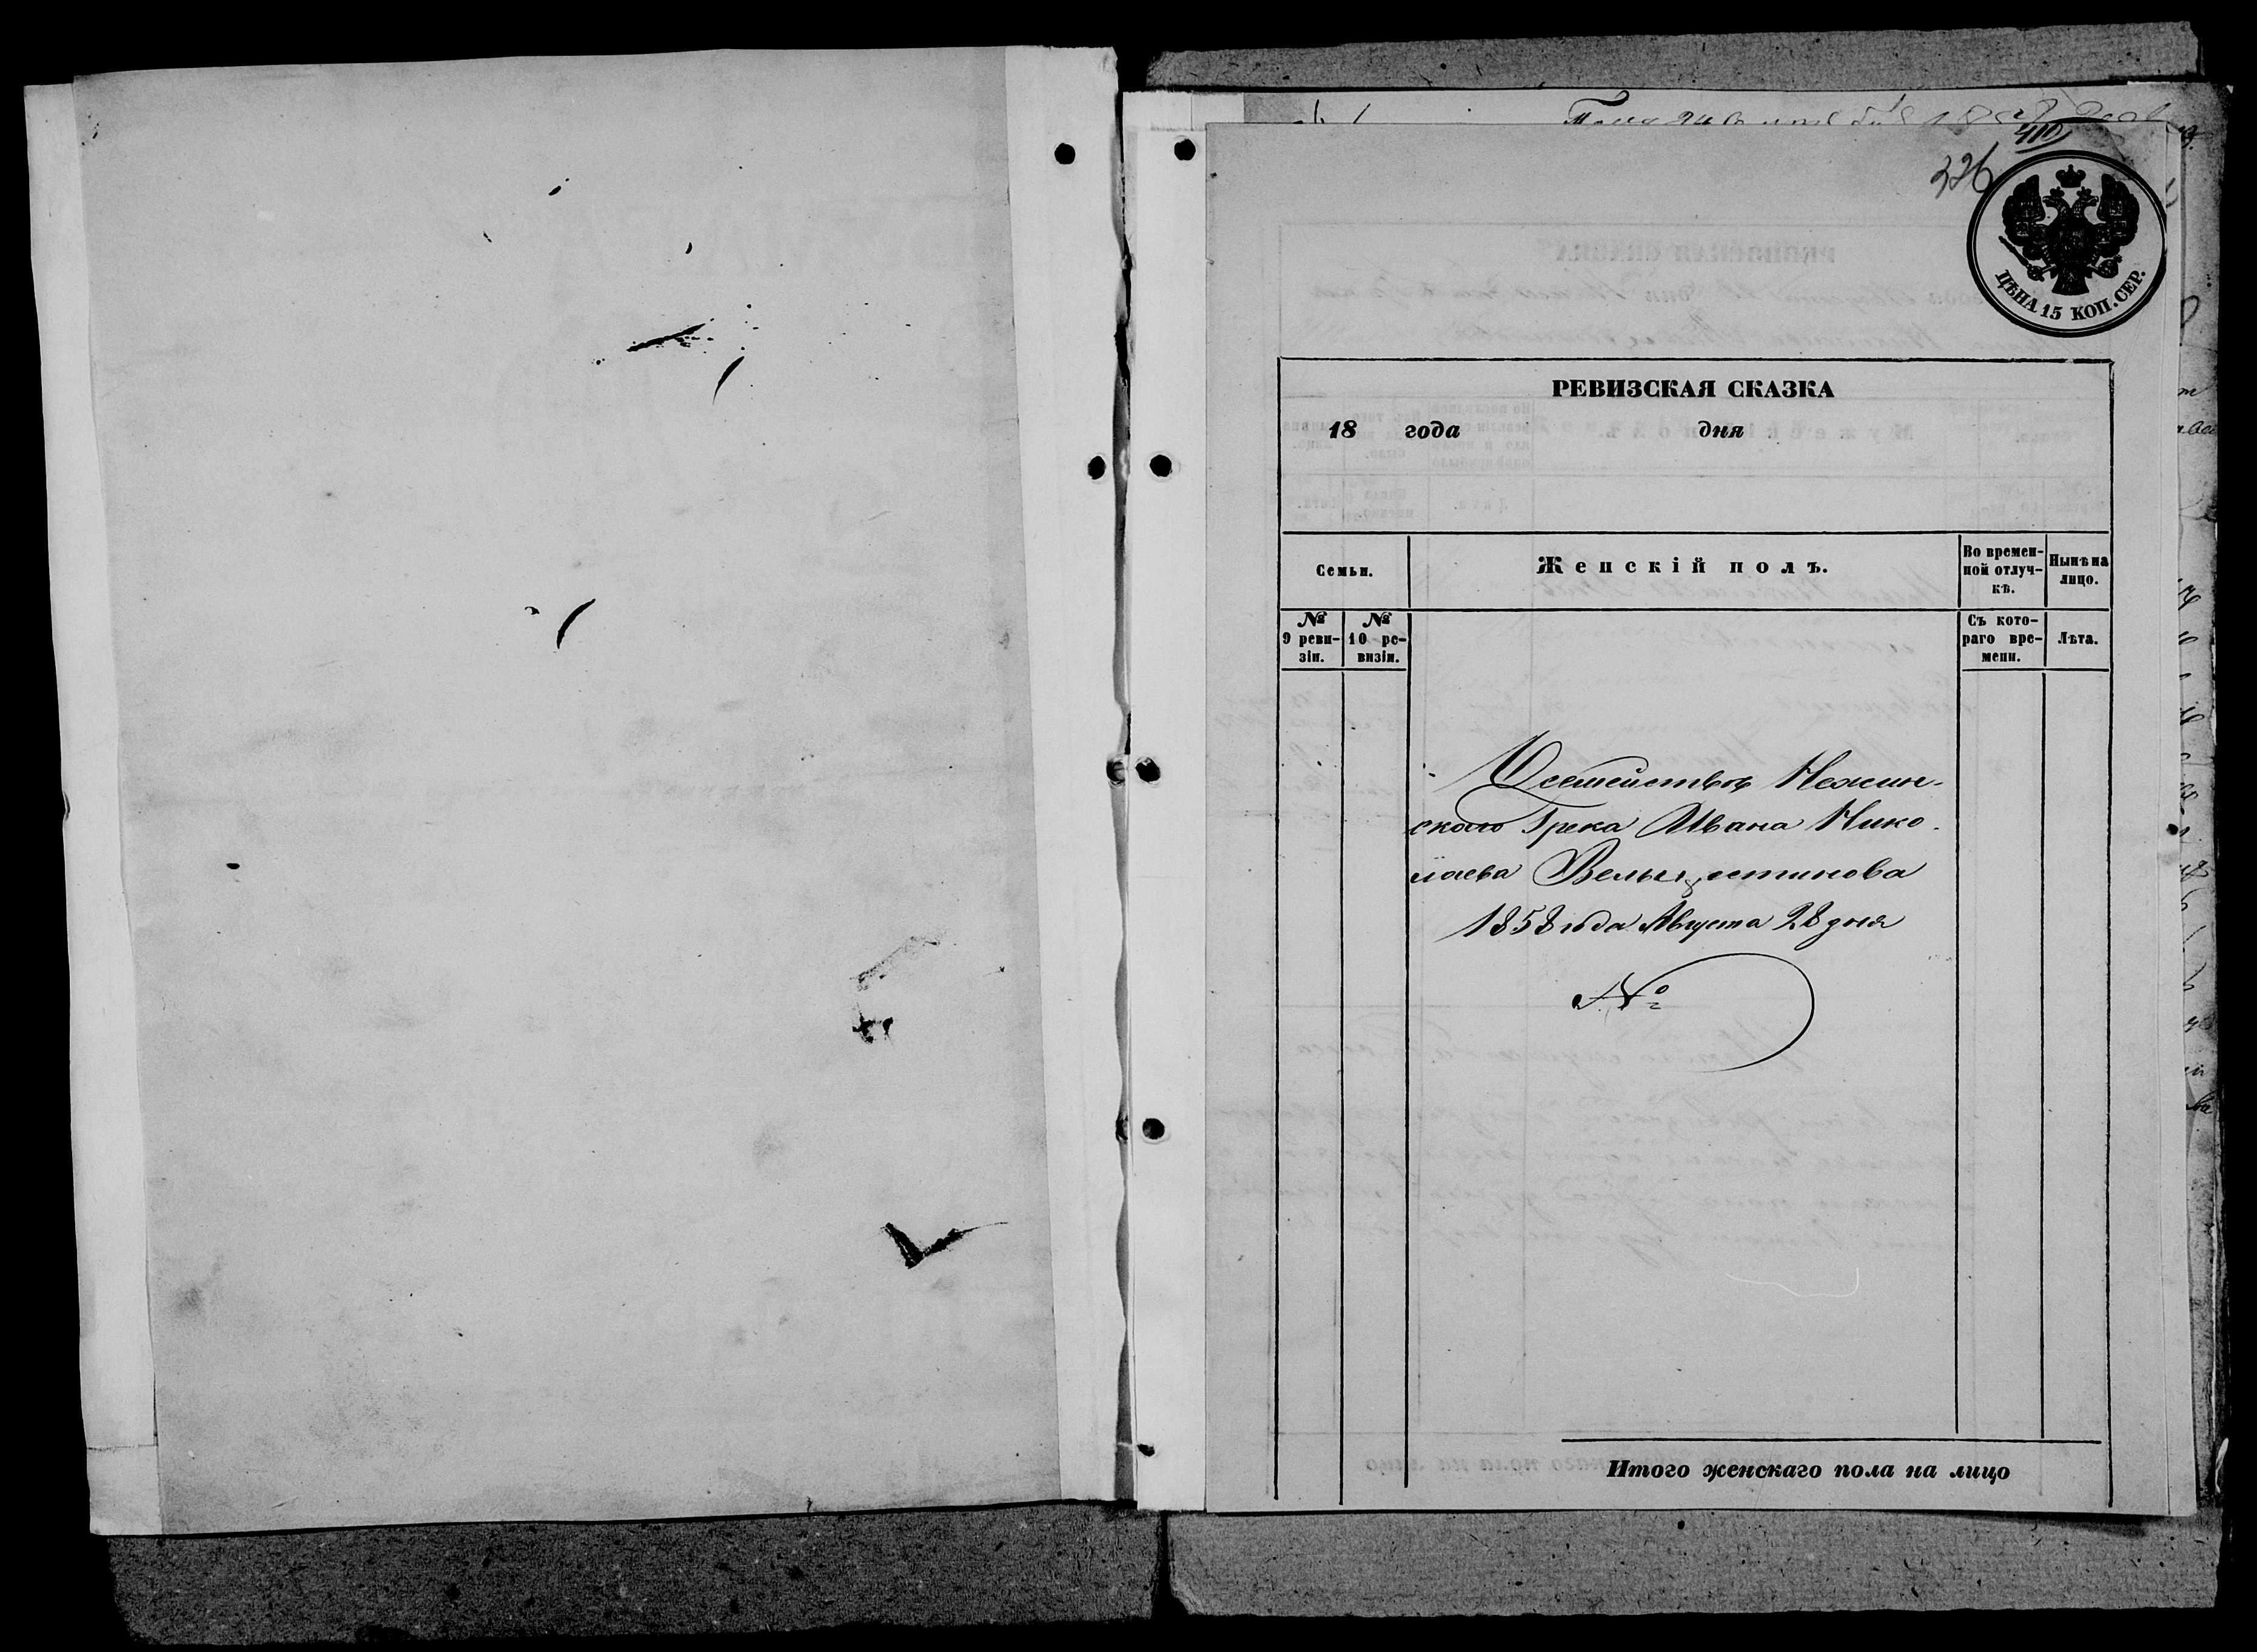 326
ЦѢНА 15 КОП. СЕР.
РЕВИЗСКАЯ СКАЗКА
18 года дня
Семьи.
Женскій полъ.
Во времен-
ной отлуч-
кѣ.
Нынѣ на
лицо.
№
9 реви-
зіи.
№
10 ре-
визіи.
Съ кото-
раго вре-
мени.
Лѣта.
О семействѣ Нежин-
ского Грека Ивана Нико-
лаева
1858 года Августа 28 дня
№
Итого женскаго пола на лицо